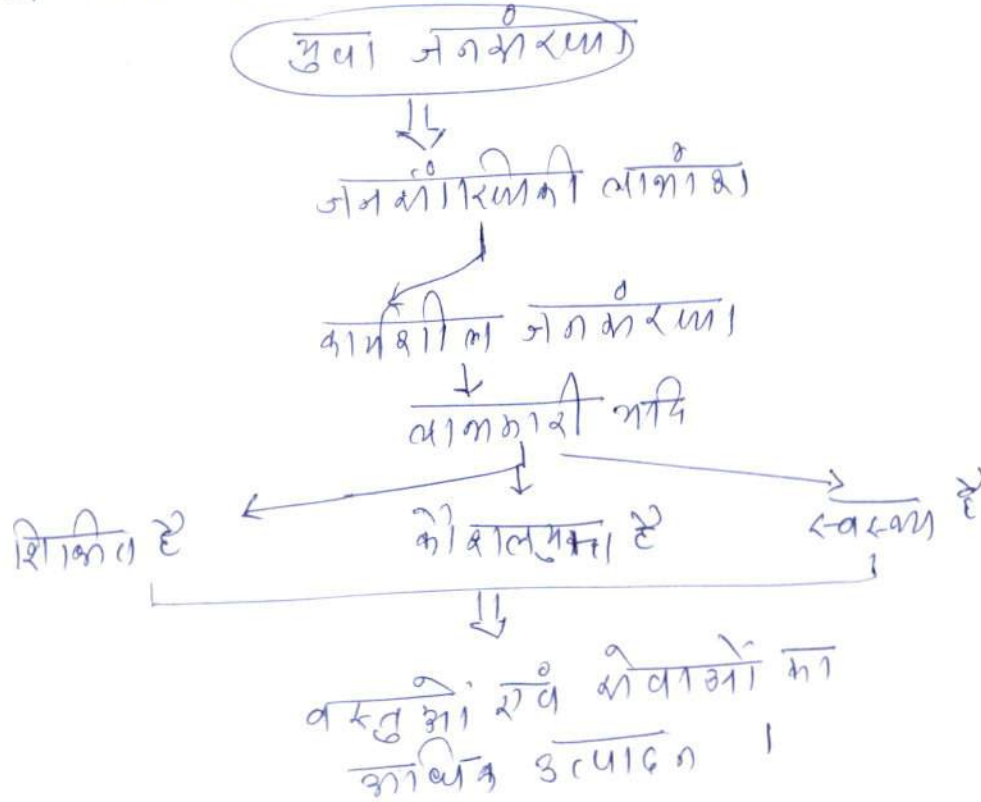 युवा जनसंख्या
जनसांख्यिकी लाभांश
कार्यशील जनसंख्या
लाभकारी यदि
शिक्षित है कौशलयुक्त है स्वस्थ है
वस्तुओं एवं सेवाओं का
आर्थिक उत्पादन ।